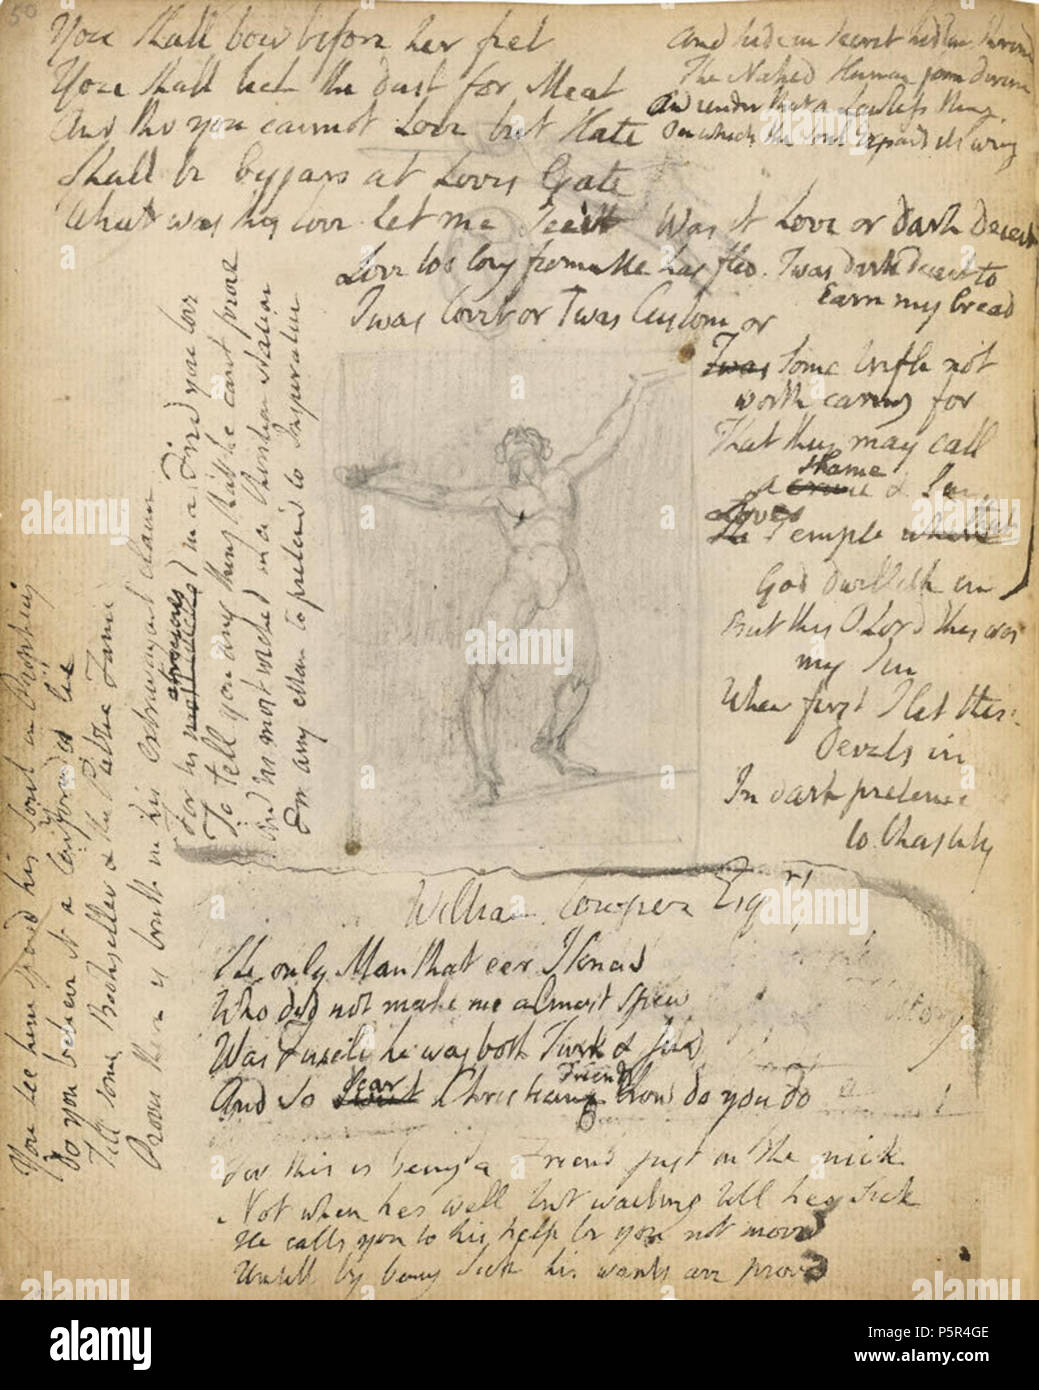 50
You shall bow before her feet
You shall lick the dust for Meat
And tho you cannot Love but Hate
Shall be beggars at Loves Gate
What was thy love let me See it Was it Love or dark Deceit
Love too long from me has fled. Twas dark deceit to
Earn my bread
Twas Covet or Twas Custom or
Twas Some trifle not
worth caring for
That they may call
a Crime shame & Sin
The Loves Temple where that
God dwelleth in
And hide in Secret hidden shrine
The Naked Human form divine
And render that a Lawless thing
On which the Soul Expands its wing
But this O Lord this was
my Sin
When first I let these
Devils in
In dark pretence
to Chastity
William Cowper Esqre
The only Man that eer I knew
Who did not make me almost spew
Was Fuseli he was both Turk & Jew
And so dear Christian Friends how do you do
For this is being a Friend just in the nick
Not when hes well but waiting till hes Sick
He calls you to his help be you not movd
Untill by being Sick his wants are provd
You see him spend his Soul in Prophecy
Do you believe it a Confounded lie
Till some Bookseller & the Public Fame
Proves there is truth in his extravagant claim
For tis atrocious in a Friend you love
To tell you any thing that he cant prove
And tis most wicked in a Christian Nation
For any Man to pretend to Inspiration
a alamy stock photo
alamy
Image ID: P5R4GE
www.alamy.com